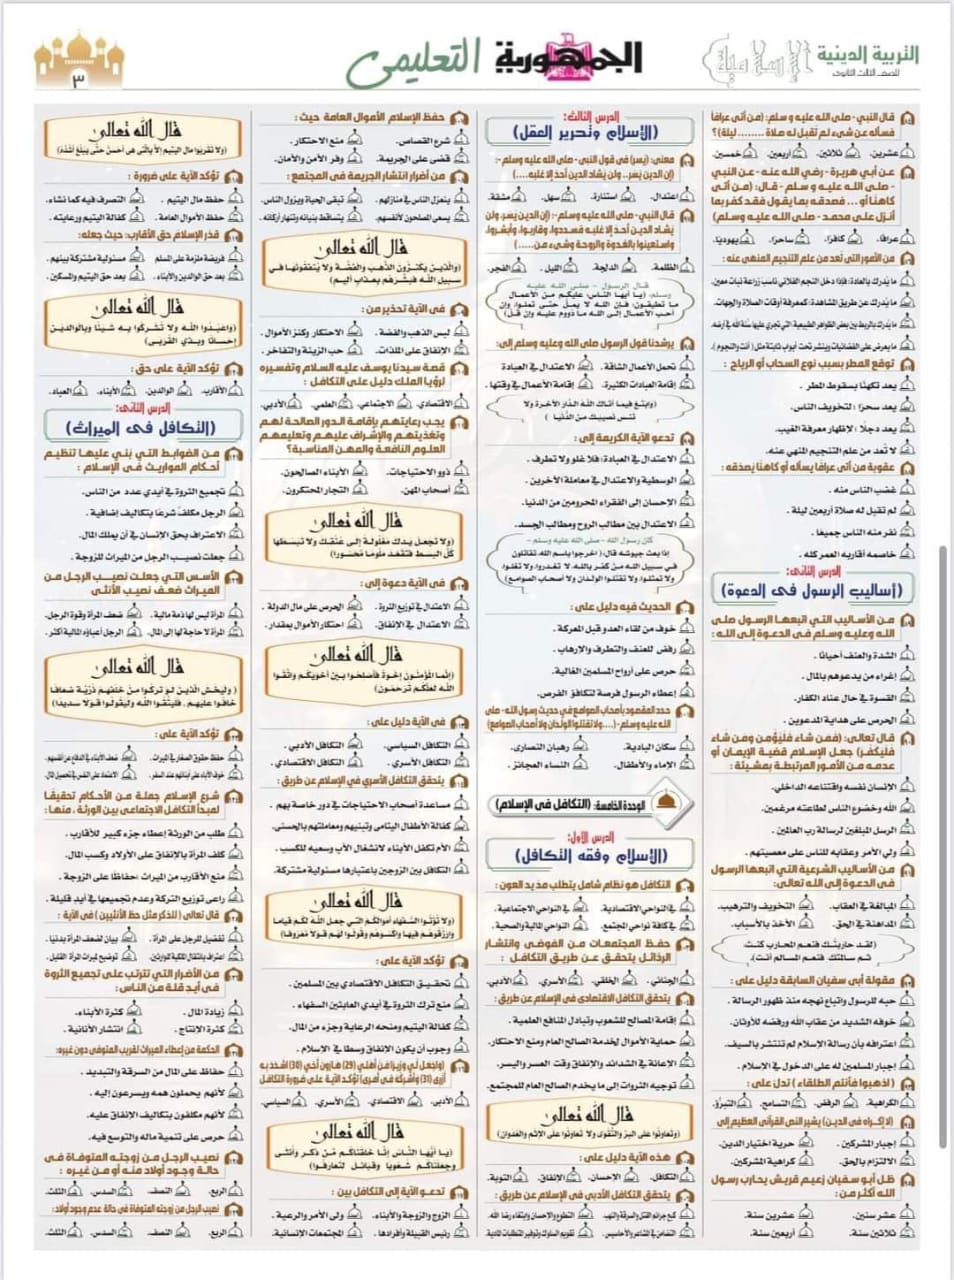 التربية الدينية الإسلامية
للصف الثالث الثانوى
الجمهورية التعليمى
٣
قال النبي - صلى الله عليه و سلم: (من أتى عرافا
فسأله عن شىء لم تقبل له صلاة ........ ليلة)؟
عشرين. ثلاثين. أربعين. خمسين.
عن أبي هريرة - رضي الله عنه - عن النبي
- صلى الله عليه و سلم - قال: (من أتى
كاهنًا أو ... فصدقه بما يقول فقد كفر بما
أنزل على محمد - صلى الله عليه وسلم)
عرافًا. كافرًا. ساحرًا. يهوديًا.
من الأمور التى تُعد من علم التنجيم المنهي عنه:
ما يُدرك بالعادة: فإذا دخل النجم الفلاني ناسب زراعة نبات معين.
ما يُدرك عن طريق المشاهدة: كمعرفة أوقات الصلاة والجهات.
ما يعرض على الفضائيات وينشر تحت أبواب ثابتة مثل ( أنت والنجوم ).
توقع المطر بسبب نوع السحاب أو الرياح :
يعد تكهنًا بسقوط المطر .
يعد سحرًا : لتخويف الناس.
يعد دجلًا : لإظهار معرفة الغيب.
لا تُعد من علم التنجيم المنهي عنه.
عقوبة من أتى عرافا يسأله أو كاهنًا يصدقه :
غضب الناس منه .
لم تقبل له صلاة أربعين ليلة .
نفر منه الناس جميعًا .
خاصمه أقاربه العمر كله .
الدرس الثانى:
(أساليب الرسول فى الدعوة)
من الأساليب التي اتبعها الرسول صلى
الله عليه وسلم فى الدعوة إلى الله :
الشدة والعنف أحيانًا .
إغراء من يدعوهم بالمال .
القسوة في حال عناد الكفار.
الحرص على هداية المدعوين .
قال تعالى: (فمن شاء فليؤمن ومن شاء
فليكفر) جعل الإسلام قضية الإيمان أو
عدمه من الأمور المرتبطة بمشيئة :
الإنسان نفسه واقتناعه الداخلي.
الله وخضوع الناس لطاعته مرغمين.
الرسل المبلغين لرسالة رب العالمين .
ولي الأمر وعقابه للناس على معصيتهم .
من الأساليب الشرعية التي اتبعها الرسول
فى الدعوة إلى الله تعالى:
المبالغة في العقاب . التخويف والترهيب.
المداهنة في الحق. الأخذ بالأسباب.
(لقد حاربتك فنعم المحارب كنت
ثم سالمتك فنعم المسالم أنت).
مقولة أبي سفيان السابقة دليل على :
حبه للرسول واتباع نهجه منذ ظهور الرسالة .
خوفه الشديد من عقاب الله ورفضه للأوثان.
اعترافه بأن رسالة الإسلام لم تنتشر بالسيف.
إجبار المسلمين له على الدخول في الإسلام .
( اذهبوا فأنتم الطلقاء ) تدل على :
الكراهية. الرفض. التسامح. التبرؤ.
(لا إكراه فى الدين) يشير النص القرآنى العظيم إلى
إجبار المشركين . حرية اختيار الدين.
الالتزام بالحق. كراهية المشركين.
ظل أبو سفيان زعيم قريش يحارب رسول
الله أكثر من :
عشر سنين. عشرين سنة.
ثلاثين سنة. أربعين سنة.
الدرس الثالث:
(الإسلام وتحرير العقل)
معنى: (يسر) في قول النبي - صلى الله عليه وسلم -:
(إن الدين يسر.. ولن يشاد الدين أحد إلا غلبه....)
اعتدال. استنارة. سهل. مشقة.
قال النبي - صلى الله عليه وسلم -: (إن الدين يسر، ولن
يشاد الدين أحد إلا غلبه فسددوا، وقاربوا، وأبشروا،
واستعينوا بالغدوة والروحة وشىء من......)
الظلمة. الدلجة. الليل. الفجر.
قال الرسول - صلى الله عليه
وسلم: (يا أيها الناس: عليكم من الأعمال
ما تطيقون: فإن الله لا يمل حتى تملوا وإن
أحب الأعمال إلى الله ما دووم عليه وإن قل)
يرشدنا قول الرسول صلى الله وعليه وسلم إلى:
تحمل الأعمال الشاقة . الاعتدال في العبادة
إقامة العبادات الكثيرة. إقامة الأعمال في وقتها .
(وابتغ فيما آتاك الله الدار الآخرة ولا
تنس نصيبك من الدنيا )
تدعو الآية الكريمة إلى :
الاعتدال في العبادة: فلا غلو ولا تطرف .
الوسطية والاعتدال في معاملة الآخرين .
الإحسان إلى الفقراء المحرومين من الدنيا.
الاعتدال بين مطالب الروح ومطالب الجسد.
كان رسول الله - صلى الله عليه وسلم -
إذا بعث جيوشه قال: (اخرجوا باسم الله، تقاتلون
في سبيل الله من كفر بالله، لا تغدروا ولا تغلوا
ولا تمثلوا ولا تقتلوا الولدان ولا أصحاب الصوامع)
الحديث فيه دليل على :
خوف من لقاء العدو قبل المعركة .
رفض للعنف والتطرف والإرهاب .
حرص على أرواح المسلمين الغالية.
إعطاء الرسول فرصة لتكافؤ الفرص.
حدد المقصود بأصحاب الصوامع في حديث رسول الله - صلى
الله عليه وسلم - (.....ولا تقتلوا الولدان ولا أصحاب الصوامع)
سكان البادية. رهبان النصارى.
الإماء والأطفال. النساء العجائز .
الوحدة الخامسة: (التكافل فى الإسلام)
الدرس الأول:
(الإسلام وفقه التكافل)
التكافل هو نظام شامل يتطلب مد يد العون :
في النواحي الاقتصادية. في النواحي الاجتماعية .
في كافة نواحي المجتمع. النواحي المالية والصحية .
حفظ المجتمعات من الفوضى وانتشار
الرذائل يتحقق عن طريق التكافل :
الجنائي. الخلقي. الأسري. الأدبي.
يتحقق التكافل الاقتصادى فى الإسلام عن طريق :
إقامة المصالح للشعوب وتبادل المنافع العلمية .
حماية الأموال لخدمة الصالح العام ومنع الاحتكار.
الإعانة في الشدائد والإنفاق وقت العسر واليسر.
توجيه الثروات إلى ما يخدم الصالح العام للمجتمع.
قال الله تعالى
(وتعاونوا على البر والتقوى ولا تعاونوا على الإثم والعدوان)
هذه الآية دليل على :
التكافل. الإحسان. الإنفاق. التوبة.
يتحقق التكافل الأدبى فى الإسلام عن طريق :
كبح جرائم القتل والسرقة والنهب. التطوع والإحسان وابتغاء رضا الله.
التضامن في المشاعر والأحاسيس. تقويم السلوك وتوفير المتطلبات المادية.
حفظ الإسلام الأموال العامة حيث :
شرع القصاص. منع الاحتكار.
قضى على الجريمة. وفر الأمن والأمان.
من أضرار انتشار الجريمة فى المجتمع :
ينعزل الناس في منازلهم . تبقى الحياة ويزول الناس.
يسعى المصلحون لأنفسهم. يتساقط بنيانه وتنهار أركانه .
قال الله تعالى
(والذين يكنزون الذهب والفضة ولا ينفقونها في
سبيل الله فبشرهم بعذاب أليم)
فى الآية تحذير من :
لبس الذهب والفضة . الاحتكار وكنز الأموال .
الإنفاق على الملذات. حب الزينة والتفاخر .
قصة سيدنا يوسف عليه السلام وتفسيره
لرؤيا الملك دليل على التكافل :
الاقتصادي. الاجتماعي. العلمي. الأدبي.
يجب رعايتهم بإقامة الدور الصالحة لهم
وتغذيتهم والإشراف عليهم وتعليمهم
العلوم النافعة والمهن المناسبة؟
ذوو الاحتياجات. الأبناء الصالحون.
أصحاب المهن. التجار المحتكرون.
قال الله تعالى
(ولا تجعل يدك مغلولة إلى عنقك ولا تبسطها
كل البسط فتقعد ملومًا محسورًا)
فى الآية دعوة إلى :
الاعتدال في توزيع الثروة . الحرص على مال الدولة .
الاعتدال في الإنفاق. احتكار الأموال بمقدار.
قال الله تعالى
(إنما المؤمنون إخوة فأصلحوا بين أخويكم واتقوا
الله لعلكم ترحمون)
فى الآية دليل على :
التكافل السياسي. التكافل الأدبي .
التكافل الأسري . التكافل الاقتصادي .
يتحقق التكافل الأسري في الإسلام عن طريق :
مساعدة أصحاب الاحتياجات في دور خاصة بهم .
كفالة الأطفال اليتامى وتبنيهم ومعاملتهم بالحسنى.
الأم تكفل الأبناء لانشغال الأب وسعيه للكسب .
التكافل بين الزوجين باعتبارها مسئولية مشتركة.
قال الله تعالى
(ولا تؤتوا السفهاء أموالكم التي جعل الله لكم قياما
وارزقوهم فيها واكسوهم وقولوا لهم قولا معروفا)
تؤكد الآية على :
تحقيق التكافل الاقتصادي بين المسلمين .
منع ترك الثروة في أيدي العابثين السفهاء .
كفالة اليتيم ومنحه الرعاية وجزء من المال.
وجوب أن يكون الإنفاق وسطا في الإسلام .
(واجعل لي وزيرا من أهلي (29) هارون أخي (30) اشدد به
أزري (31) وأشركه في أمري) تؤكد الآية على ضرورة التكافل
الأدبي. الاقتصادي. الأسري. السياسي.
قال الله تعالى
(يا أيها الناس إنا خلقناكم من ذكر وأنثى
وجعلناكم شعوبا وقبائل لتعارفوا)
تدعو الآية إلى التكافل بين :
الزوج والزوجة والأبناء. ولي الأمر والرعية .
رئيس القبيلة وأفرادها . المجتمعات الإنسانية.
قال الله تعالى
(ولا تقربوا مال اليتيم إلا بالتي هي أحسن حتى يبلغ أشده)
تؤكد الآية على ضرورة :
حفظ مال اليتيم . التصرف فيه كما نشاء.
حفظ الأموال العامة. كفالة اليتيم ورعايته .
قدر الإسلام حق الأقارب: حيث جعله:
فريضة ملزمة على المسلم مسئولية مشتركة بينهم.
بعد حق الوالدين والأبناء. بعد حق اليتيم والمسكين.
قال الله تعالى
(واعبدوا الله ولا تشركوا به شيئا وبالوالدين
إحسانا وبذي القربى)
تؤكد الآية على حق :
الأقارب. الوالدين. الأبناء. العباد.
الدرس الثانى:
(التكافل فى الميراث)
من الضوابط التي بني عليها تنظيم
أحكام المواريث فى الإسلام :
تجميع الثروة في أيدي عدد من الناس.
الرجل مكلف شرعا بتكاليف إضافية .
الاعتراف بحق الإنسان في أن يملك المال.
جعلت نصيب الرجل من الميراث للزوجة .
الأسس التي جعلت نصيب الرجل من
الميراث ضعف نصيب الأنثى
المرأة ليس لها ذمة مالية . ضعف المرأة وقوة الرجل.
المرأة لا حاجة لها إلى المال. الرجل أعباؤه المالية أكثر .
قال الله تعالى
( وليخش الذين لو تركوا من خلفهم ذرية ضعافا
خافوا عليهم . فليتقوا الله وليقولوا قولا سديدا)
تؤكد الآية على :
حفظ حقوق الصغار في الميراث . ضعف الأبناء في الدفاع عن أنفسهم.
خوف الآباء على أبنائهم عند السفر. الاعتماد على النفس في تحصيل المال.
شرع الإسلام جملة من الأحكام تحقيقًا
لمبدأ التكافل الاجتماعى بين الورثة ، منها :
طلب من الورثة إعطاء جزء كبير للأقارب .
كلف المرأة بالإنفاق على الأولاد وكسب المال.
منع الأقارب من الميراث: حفاظا على الزوجة .
راعى توزيع التركة وعدم تجميعها في أيد قليلة .
قال تعالى ( للذكر مثل حظ الأنثيين ) فى الآية :
تفضيل للرجل على المرأة . بيان لضعف المرأة بدنيًا .
اعتراف بانتقال الملكية للوارثين. توضيح لميراث المرأة القليل .
من الأضرار التي تترتب على تجميع الثروة
فى أيد قلة من الناس :
زيادة المال . كثرة الأبناء.
كثرة الإنتاج . انتشار الأنانية .
الحكمة من إعطاء الميراث لقريب المتوفى دون غيره:
حفاظا على المال من السرقة والتبديد .
لأنهم يحملون همه ويسرعون إليه .
لأنهم مكلفون بتكاليف الإنفاق عليه.
حرص على تنمية ماله والتوسع فيه .
نصيب الرجل من زوجته المتوفاة فى
حالة وجود أولاد منه أو من غيره :
الربع. النصف. السدس. الثلث.
نصيب الرجل من زوجته المتوفاة فى حالة عدم وجود أولاد:
الربع. النصف. السدس. الثلث.